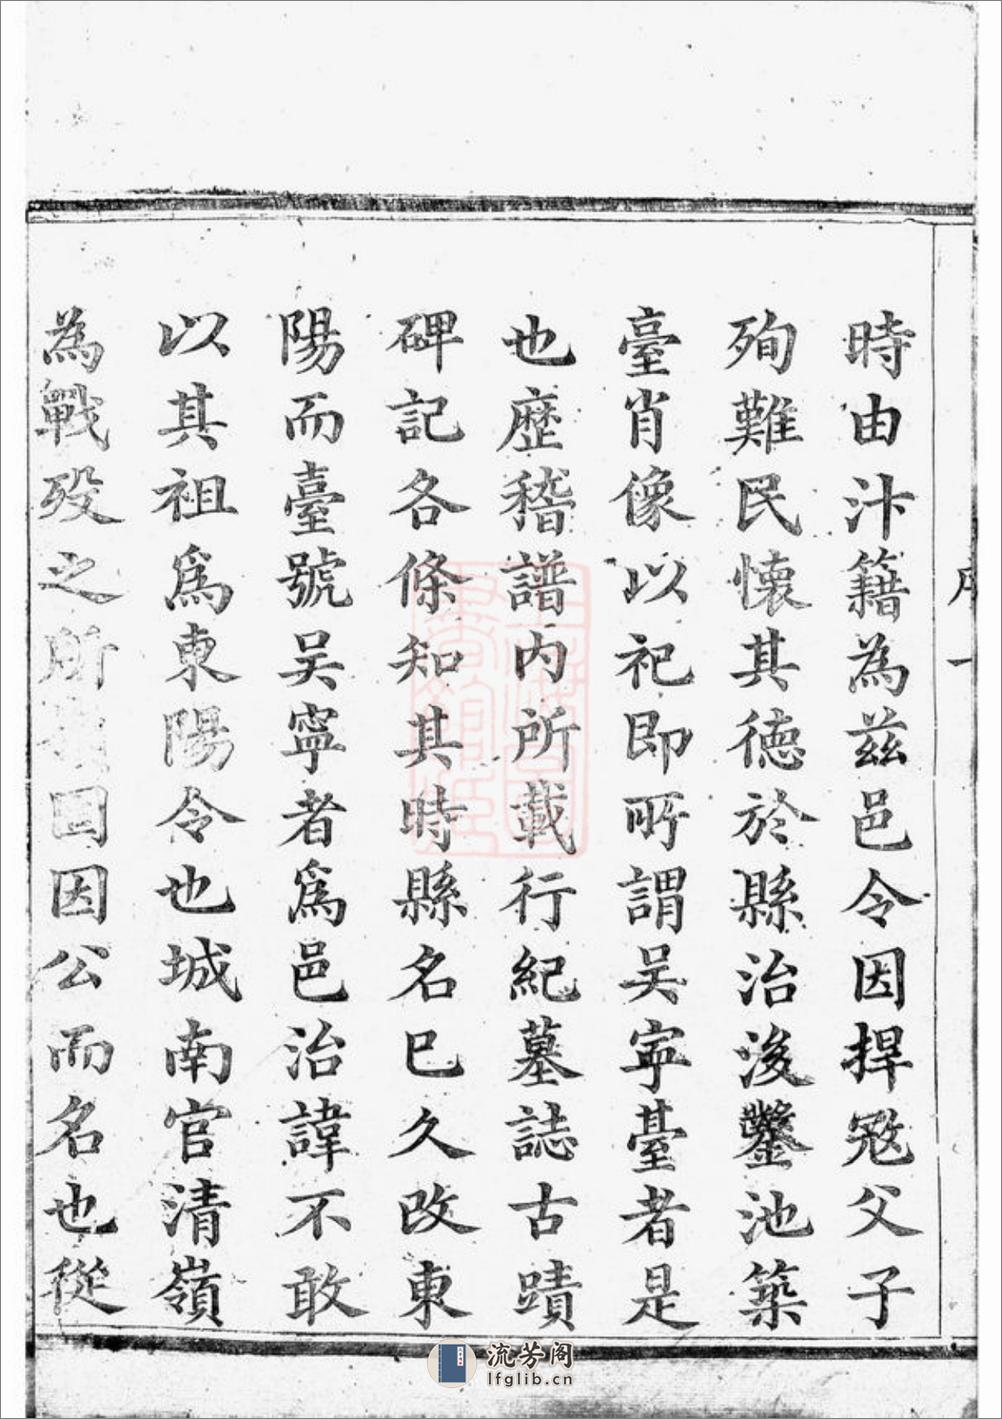 時由汴籍為茲邑令因捍冦父子
殉難民懷其德於縣治浚鑿池築
臺肖像以祀即所謂吴寧臺者是
也歷稽譜內所載行紀墓誌古蹟
碑記各條知其時縣名巳久改東
陽而臺號吴寧者爲邑治諱不敢
以其祖爲東陽令也城南官清嶺
為戰歿之所因公而名也從
序 一
流芳阁
lfglib.cn